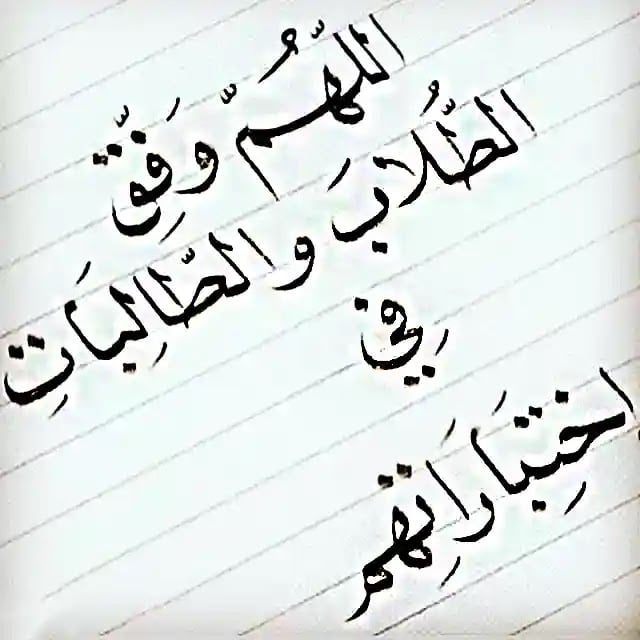 اللّهُمّ وَفِّق
الطُّلابَ والطّالِبَاتِ
فِي
اختِيَارَاتِهم